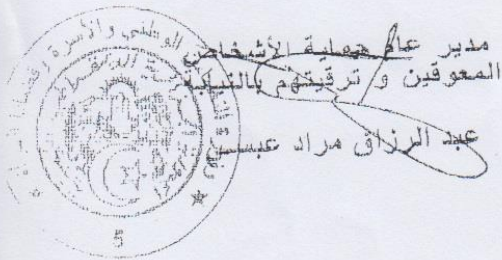 مدير عام حماية الأشخاص
المعوقين و ترقيتهم بالنيابة
عبد الرزاق مراد
الوطني والأسرة وقضايا
5